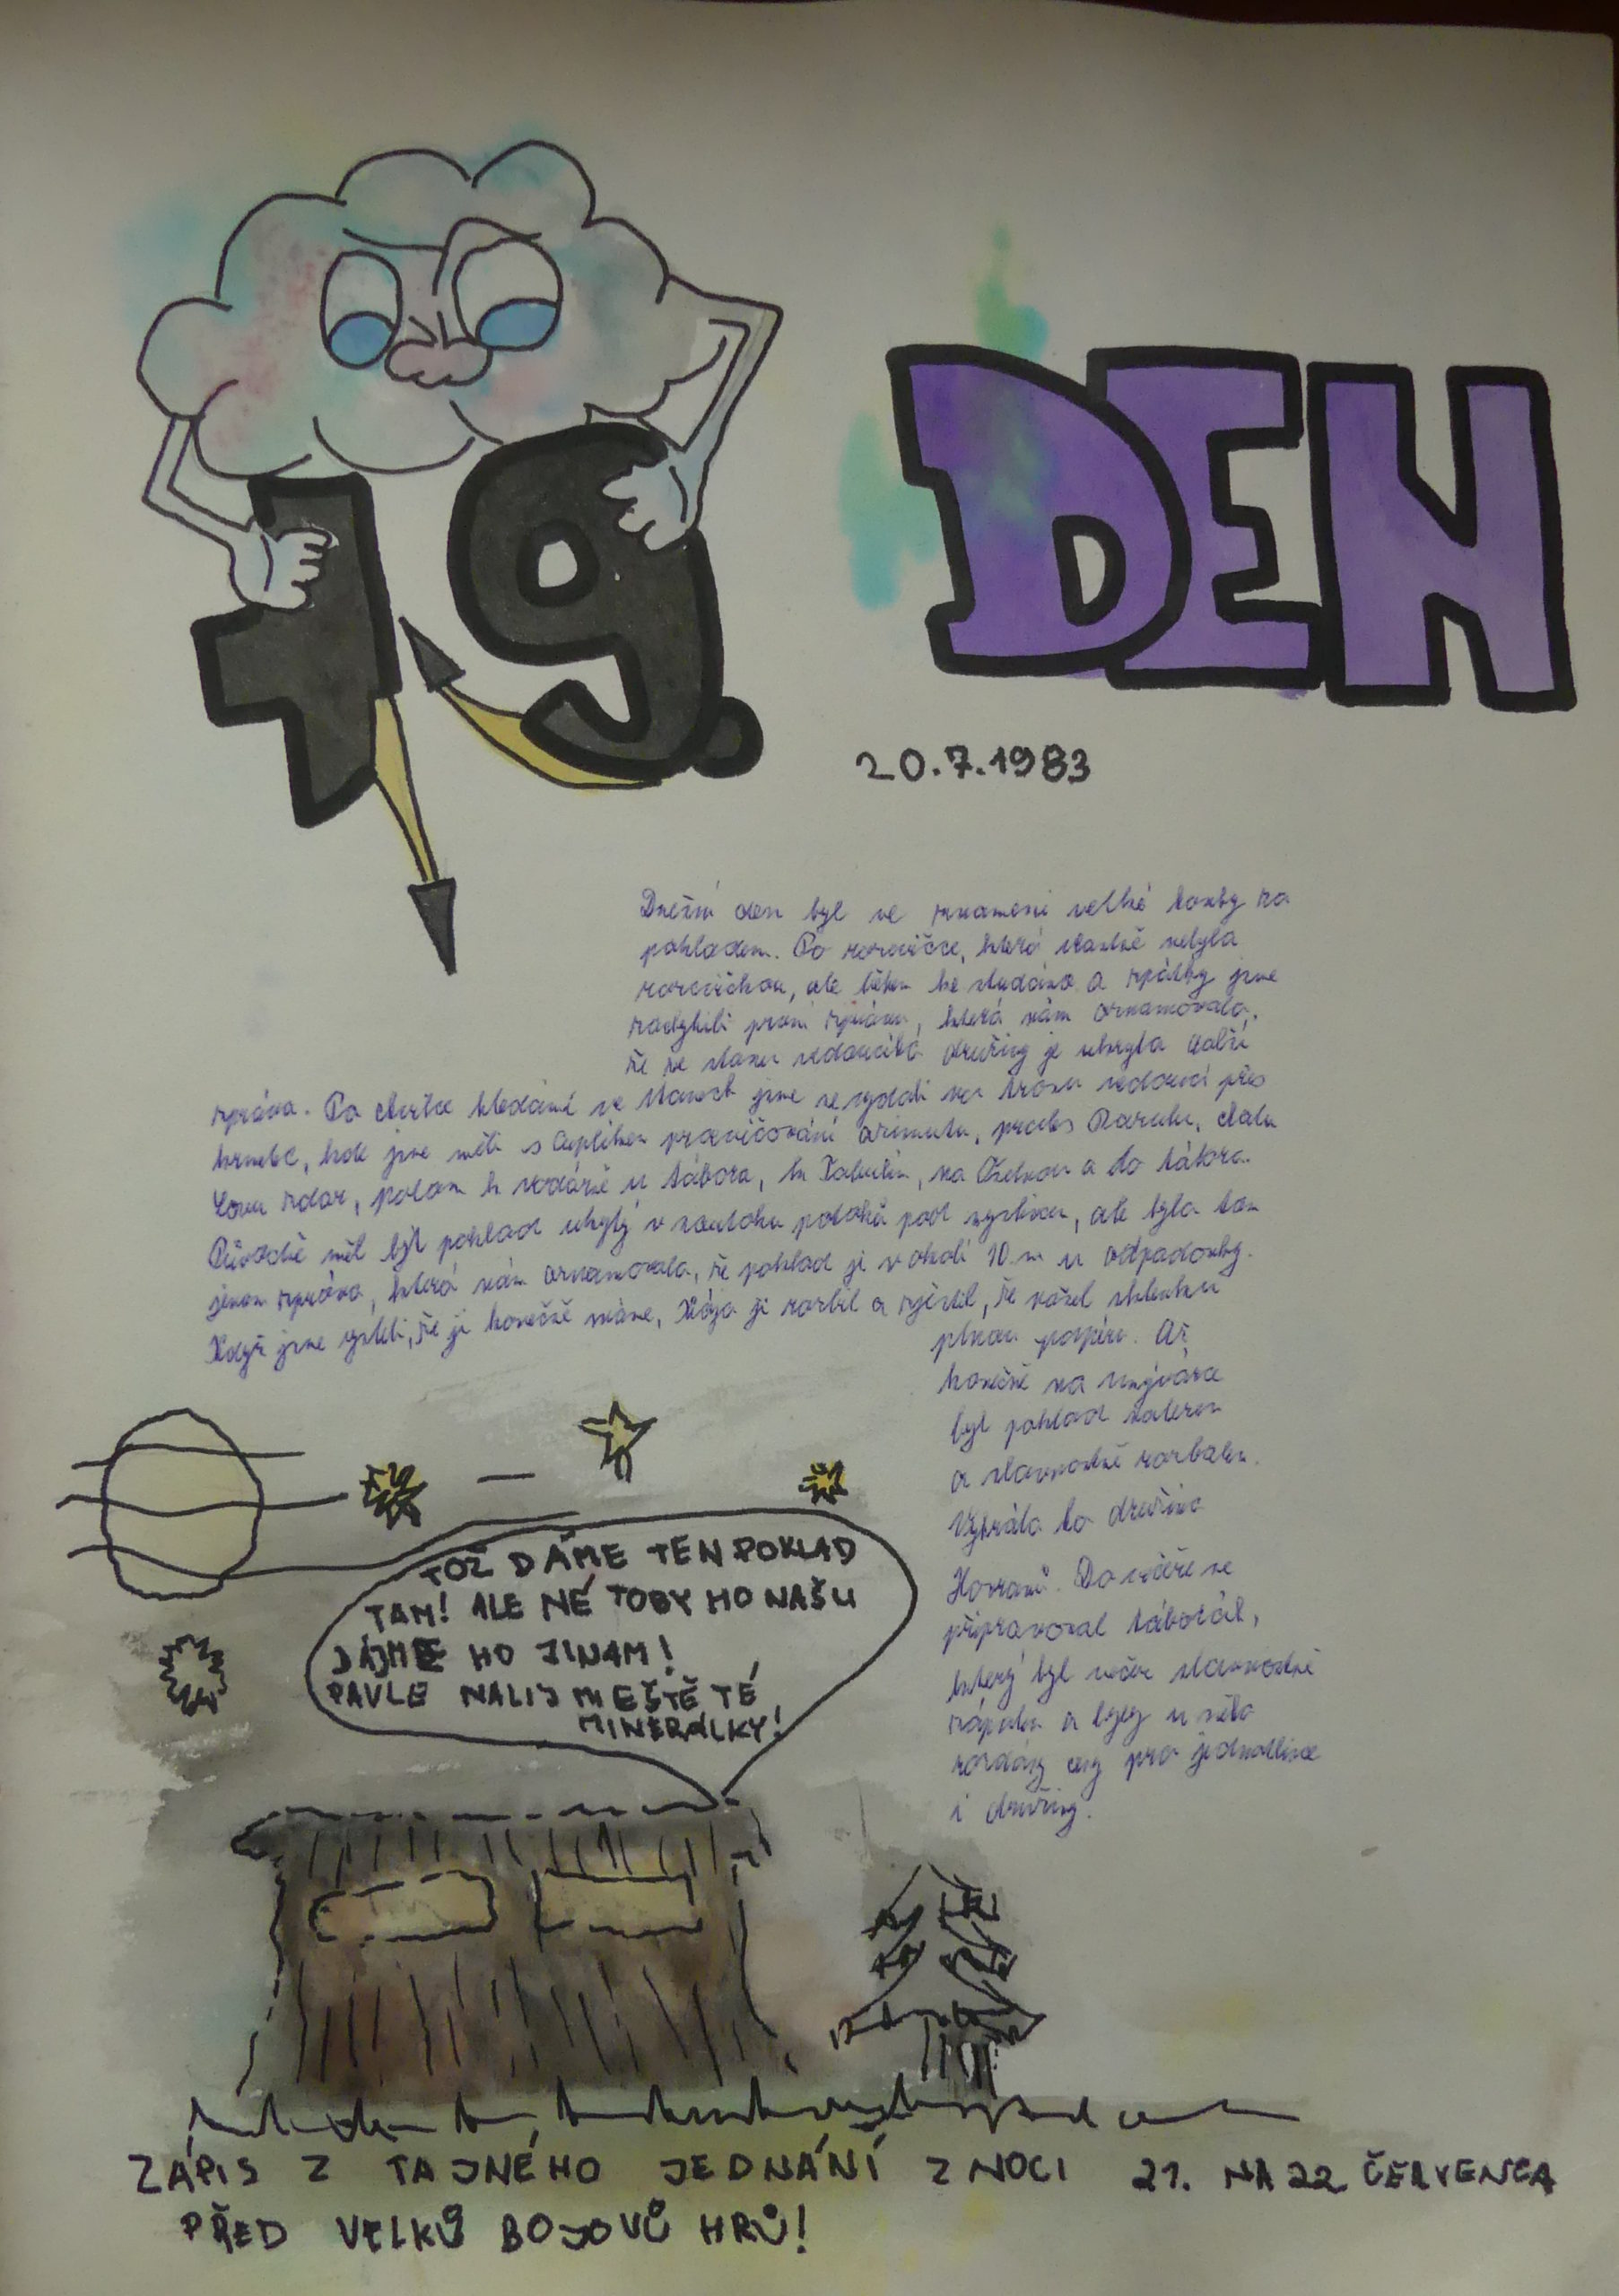 19. DEN
20.7.1983
Dnešní den byl ve znamení velké honby za
pokladem. Po rozcvičce, která vlastně nebyla
rozcvičkou, ale během ke studánce a zpátky jsme
zachytili první zprávu, která nám oznamovala,
že ve stanu vedoucího družiny je ukryta další
zpráva. Po chvilce hledání ve stanech jsme se vydali na trasu vedoucí přes
kde jsme měli s procvičování azimutu,
zdar, potom k vodárně u tábora, na a do tábora.
Původně měl být poklad ukrytý v soutoku potoků pod, ale byla tam
jenom zpráva, která nám oznamovala, že poklad je v okolí 10 m u odpadovky.
Když jsme, že ji konečně máme, Kája ji rozbil a zjistil, že našel sklenku
plnou papíru. Až
konečně na umývárce
byl poklad nalezen
a slavnostně rozbalen.
Vyhrála to družina
Havranů. Do večeře se
připravoval táborák,
který byl večer slavnostně
zapálen a byly u něho
rozdány ceny pro jednotlivce
i družiny.
TOŽ DÁME TEN POKLAD
TAM! ALE NÉ TOBY HO NAŠU
DÁJME HO JINAM!
PAVLE NALIJ MĚ EŠTĚ TÉ
MINERÁLKY!
ZÁPIS Z TAJNÉHO JEDNÁNÍ Z NOCI 21. NA 22. ČERVENCA
PŘED VELKŮ BOJOVŮ HRŮ!